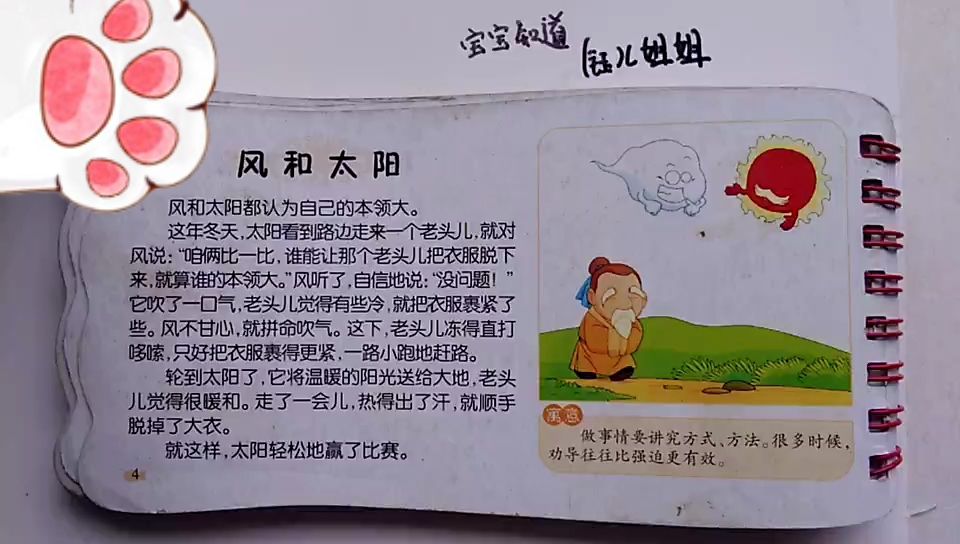 宝宝知道
钰儿姐姐
风和太阳
风和太阳都认为自己的本领大。
这年冬天,太阳看到路边走来一个老头儿,就对
风说：“咱俩比一比，谁能让那个老头儿把衣服脱下
来,就算谁的本领大。”风听了,自信地说：“没问题！”
它吹了一口气,老头儿觉得有些冷,就把衣服裹紧了
些。风不甘心,就拼命吹气。这下,老头儿冻得直打
哆嗦,只好把衣服裹得更紧,一路小跑地赶路。
轮到太阳了,它将温暖的阳光送给大地,老头
儿觉得很暖和。走了一会儿,热得出了汗,就顺手
脱掉了大衣。
就这样,太阳轻松地赢了比赛。
4
寓意
做事情要讲究方式、方法。很多时候,
劝导往往比强迫更有效。